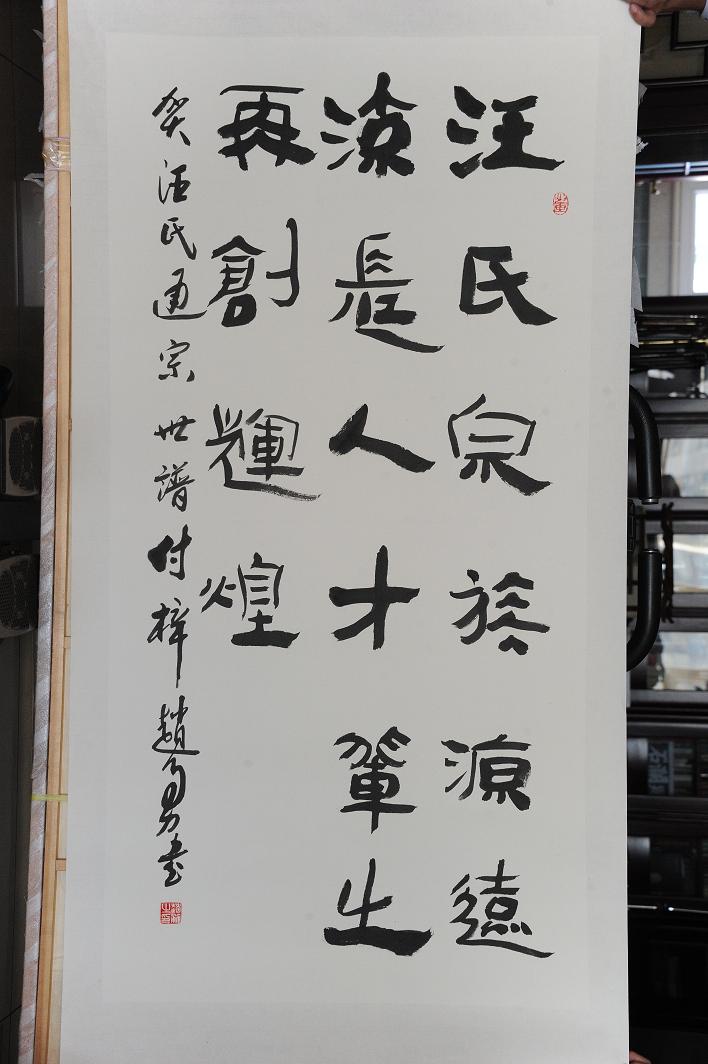 汪氏宗族源遠
流長人才輩出
再創輝煌
贺汪氏通宗世譜付梓 趙勇書